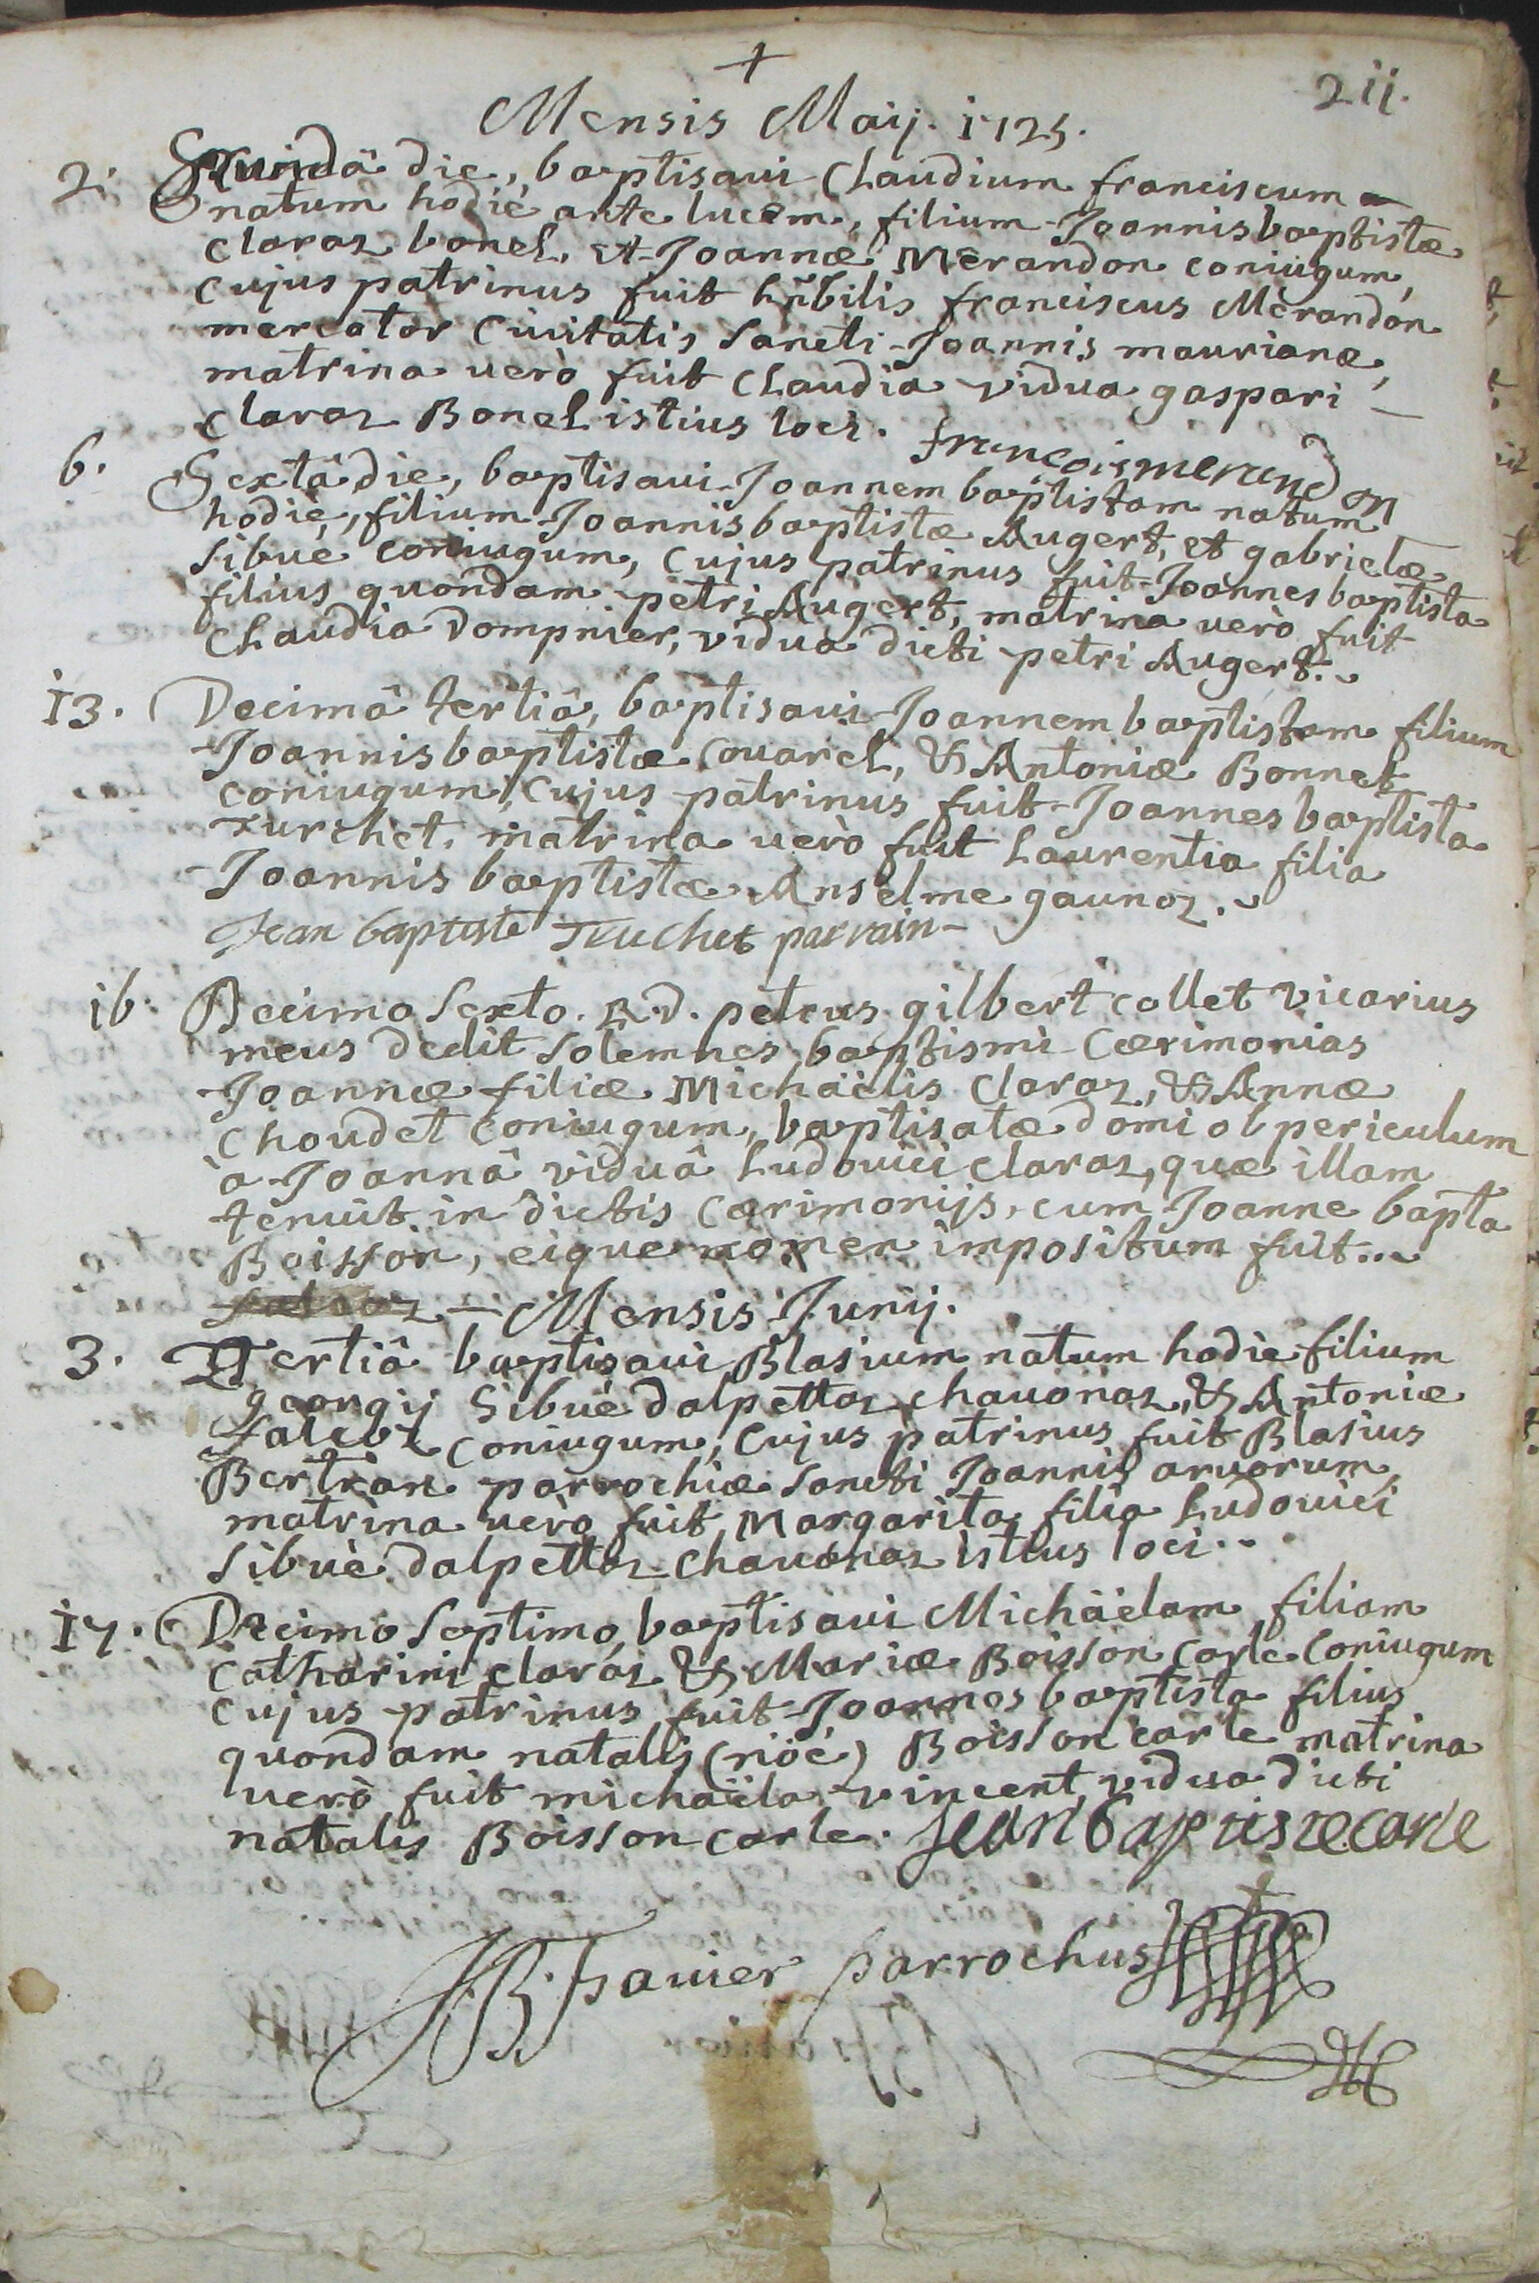 +
211.
Mensis Maij. 1725.
2. Secundâ die, baptisaui Claudium franciscum
natum hodiè ante lucem, filium Joannisbaptistæ
Claraz bonel, et Joannæ Merandon coniugum,
Cujus patrinus fuit hñbilis franciscus Merandon
mercator Ciuitatis Sancti Joannis maurianæ,
matrina uerò fuit Claudia vidua gaspari
Claraz Bonel istius loci. françois merandon
6. Sextâ die, baptisaui Joannem baptistam natum
hodiè, filium Joannisbaptistæ Augert, et gabrielæ
Sibué coniugum, Cujus patrinus fuit Joannesbaptista
filius quondam petri Augert, matrina uerò fuit
Claudia Dompnier, vidua dicti petri Augert.
13. Decimâ tertiâ, baptisaui Joannem baptistam filium
Joannisbaptistæ Couarel, & Antoniæ Bonnet
coniugum, Cujus patrinus fuit Joannes baptista
matrina uerò fuit Laurentia filia
Joannis baptistæ Anselme gaunoz.
Jean baptiste Truchet parrain
16. Decimo Sexto. R.D. petrus gilbert collet vicarius
meus dedit Solemnes baptismi Cærimonias
Joannæ filiæ Michäelis Claraz, & Annæ
Choudet coniugum, baptisatæ domi ob periculum
à Joannâ viduâ Ludouici claraz, quæ illam
tenuit in dictis Cærimonijs, cum Joanne bapta
Boisson, eique nomen impositum fuit...
Mensis Junij.
3. Tertiâ baptisaui Blasium natum hodie filium
georgij Sibué dalpettaz chauonaz, & Antoniæ
falcoz coniugum, Cujus patrinus fuit Blasius
Bertran parrochiæ Sancti Joannis aruorum,
matrina uerò fuit Margarita filia Ludouici
Sibuè dalpettaz chauonaz istius loci..
17. Decimo Septimo, baptisaui Michäelam filiam
Catharini claraz & Mariæ Boisson carle Coniugum
Cujus patrinus fuit Joannes baptista filius
quondam natalis (nöé) Boisson carle matrina
uerò fuit michaëla vincent vidua dicti
natalis Boisson carle. Jean baptiste carle
JB. favier parrochus